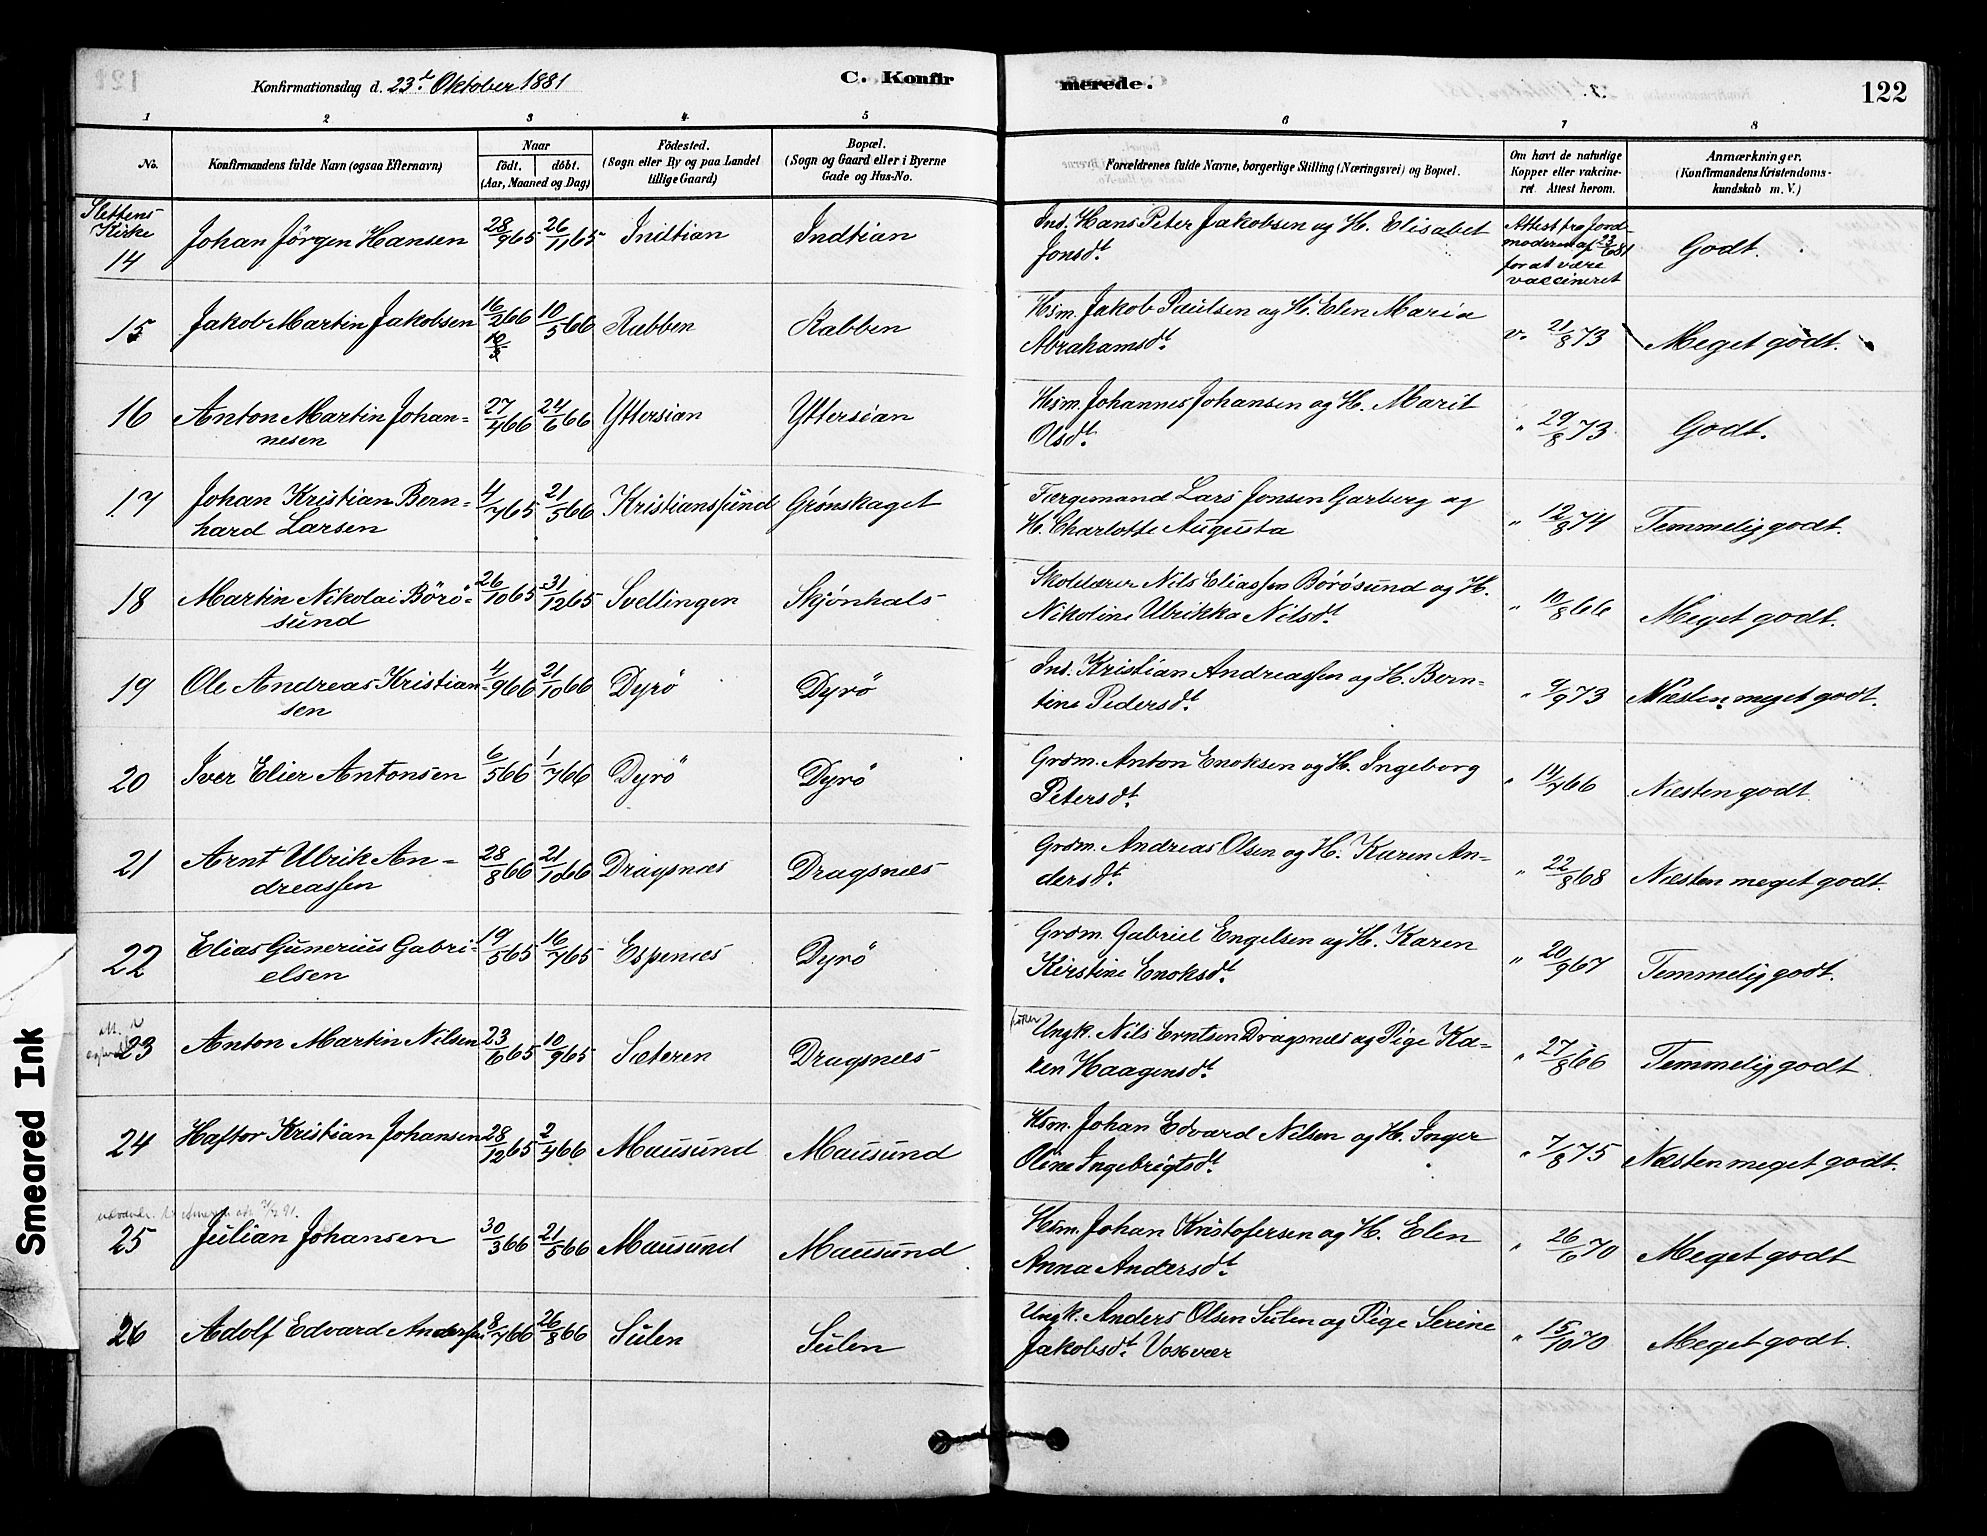 Konfirmationsdag d. 23de Oktober 1881
C. Konfirmerede.
122
1 2 3 4 5 6 7 8
No. Konfirmandens fulde Navn (ogsaa Efternavn) Naar födt. döbt. (Aar, Maaned og Dag) Födested. (Sogn eller By og paa Landet tillige Gaard) Bopæl. (Sogn og Gaard eller i Byerne Gade og Hus-No. Forældrenes fulde Navne, borgerlige Stilling (Næringsvei) og Bopæl. Om havt de naturlige Kopper eller vakcineret. Attest herom. Anmærkninger. (Konfirmandens Kristendomskundskab m. V.)
Slettens Kirke
14 Johan Jörgen Hansen 28/9 65 26/11 65 Indtian Indtian Ind. Hans Peter Jakobsen og H. Elisabet
Jonsdt. Attest fra Jordmoderen af 23/6 81 for at være vaccineret Godt.
15 Jakob Martin Jakobsen 16/2 66 10/5 66 Rabben Rabben Hsm. Jakob Paulsen og H. Elen Maria
Abrahamsdt. v. 21/8 73 Meget godt.
16 Anton Martin Johan-
nesen 27/4 66 24/6 66 Yttersian Yttersian Hsm. Johannes Johansen og H. Marit
Olsdt. " 29/8 73 Godt.
17 Johan Kristian Bern-
hard Larsen 4/7 65 21/5 66 Kristianssund Grønskaget Færgemand Lars Jonsen Garberg og
H. Charlotte Augusta " 12/8 74 Temmelig godt.
18 Martin Nikolai Börö-
sund 26/10 65 31/12 65 Svellingen Skjönhals Skolelærer Nils Eliassen Börösund og H.
Nikoline Ulrikka Nilsdt. " 10/8 66 Meget godt.
19 Ole Andreas Kristian-
sen 4/9 66 21/10 66 Dyrö Dyrö Ind. Kristian Andreassen og H. Bern-
tine Pedersdt. " 9/9 73 Næsten meget godt.
20 Iver Elier Antonsen 6/5 66 1/7 66 Dyrö Dyrö Grdm. Anton Enoksen og H. Ingeborg
Petersdt. " 14/7 66 Næsten godt
21 Arnt Ulrik An-
dreassen 28/8 66 21/10 66 Dragsnæs Dragsnæs Grdm. Andreas Olsen og H. Karen An-
dersdt. " 22/8 68 Næsten meget godt.
22 Elias Gunerius Gabri-
elsen 19/5 65 16/7 65 Espenæs Dyrö Grdm. Gabriel Engelsen og H. Karen
Kirstine Enoksdt. " 20/9 67 Temmelig godt.
23 Anton Martin Nilsen 23/6 65 10/9 65 Sæteren Dragsnæs Ungk. Nils Erntsen Dragsnæs og Pige Ka-
ren Haagensdt. " 27/8 66 Temmelig godt
24 Haftor Kristian Johansen 28/12 65 2/4 66 Mausund Mausund Hsm. Johan Edvard Nilsen og H. Inger
Oline Ingebrigtsdt. " 7/8 75 Næsten meget godt.
25 Julian Johansen 30/3 66 21/5 66 Mausund Mausund Hsm. Johan Kristofersen og H. Elen
Anna Andersdt. " 26/6 70 Meget godt
26 Adolf Edvard Anderssen 8/7 66 26/8 66 Sulen Sulen Ungk. Anders Olsen Sulen og Pige Serine
Jakobsdt. Vosevær " 15/10 70 Meget godt.
Smeared Ink